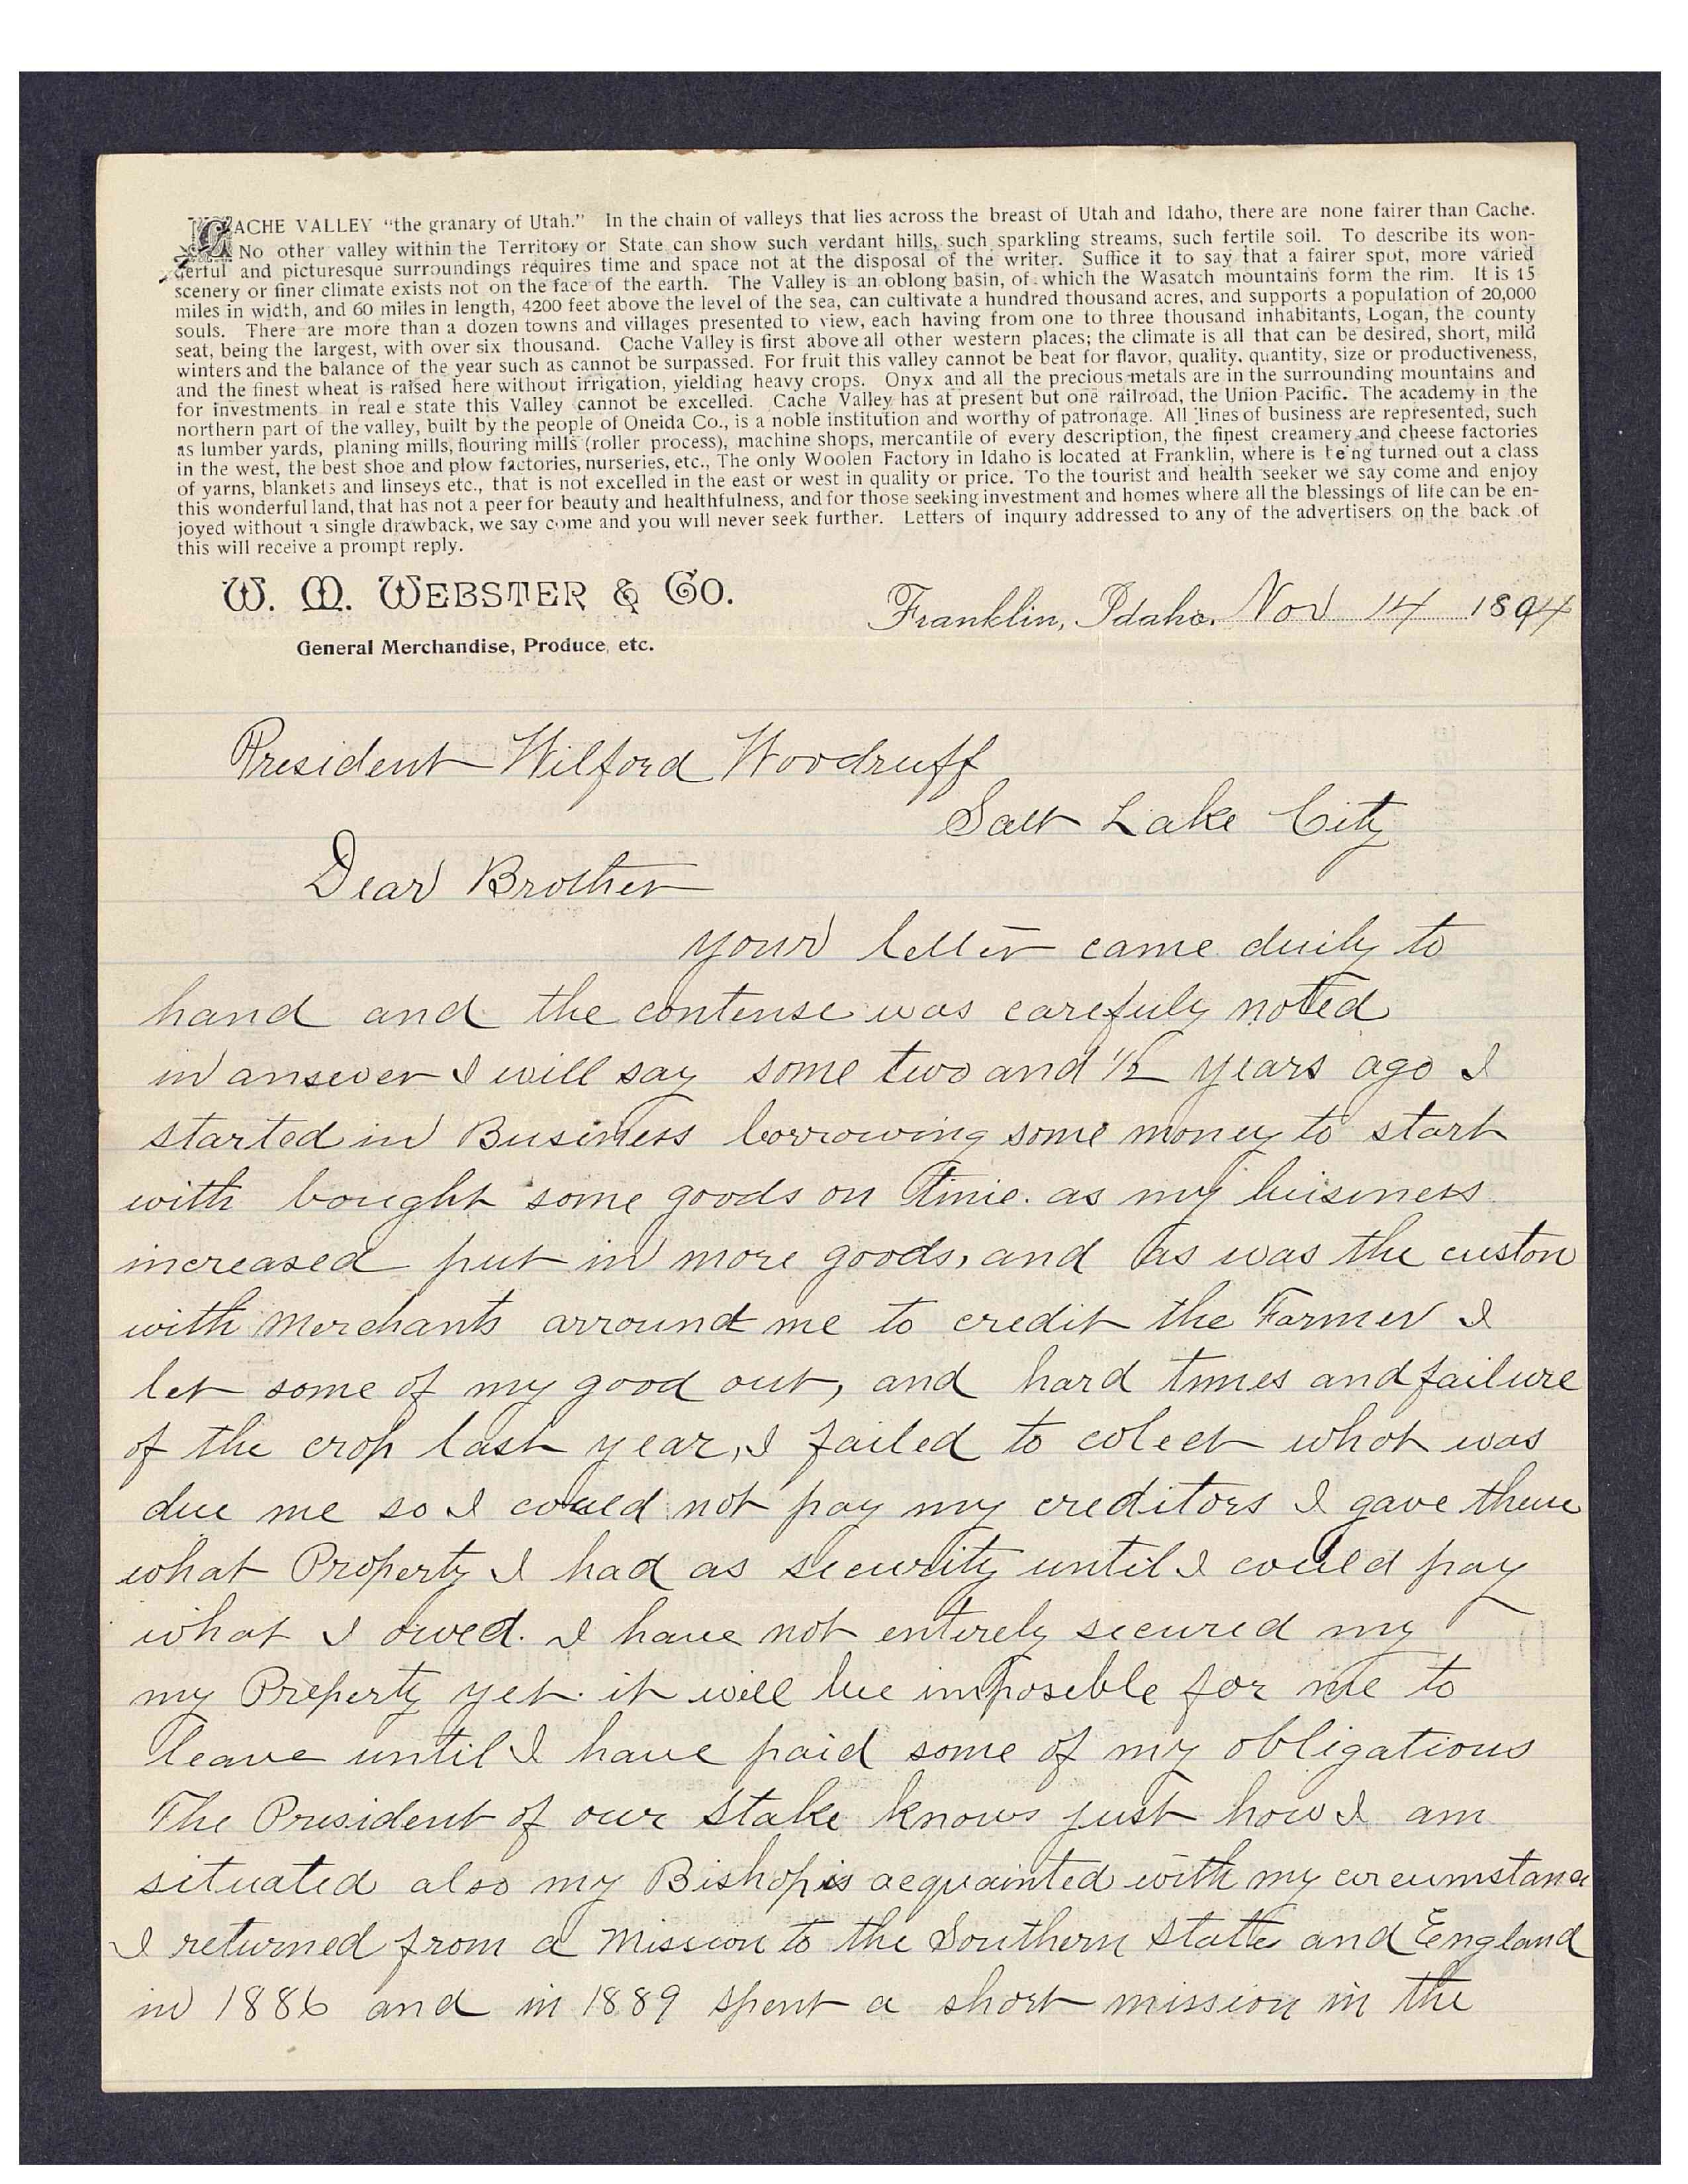 CACHE VALLEY “the granary of Utah.” In the chain of valleys that lies across the breast of Utah and Idaho, there are none fairer than Cache.
No other valley within the Territory or State can show such verdant hills, such sparkling streams, such fertile soil. To describe its won-
derful and picturesque surroundings requires time and space not at the disposal of the writer. Suffice it to say that a fairer spot, more varied
scenery or finer climate exists not on the face of the earth. The Valley is an oblong basin, of which the Wasatch mountains form the rim. It is 15
miles in width, and 60 miles in length, 4200 feet above the level of the sea, can cultivate a hundred thousand acres, and supports a population of 20,000
souls. There are more than a dozen towns and villages presented to view, each having from one to three thousand inhabitants, Logan, the county
seat, being the largest, with over six thousand. Cache Valley is first above all other western places; the climate is all that can be desired, short, mild
winters and the balance of the year such as cannot be surpassed. For fruit this valley cannot be beat for flavor, quality, quantity, size or productiveness,
and the finest wheat is raised here without irrigation, yielding heavy crops. Onyx and all the precious metals are in the surrounding mountains and
for investments in real e state this Valley cannot be excelled. Cache Valley has at present but one railroad, the Union Pacific. The academy in the
northern part of the valley, built by the people of Oneida Co., is a noble institution and worthy of patronage. All lines of business are represented, such
as lumber yards, planing mills, flouring mills (roller process), machine shops, mercantile of every description, the finest creamery and cheese factories
in the west, the best shoe and plow factories, nurseries, etc., The only Woolen Factory in Idaho is located at Franklin, where is being turned out a class
of yarns, blankets and linseys etc., that is not excelled in the east or west in quality or price. To the tourist and health seeker we say come and enjoy
this wonderful land, that has not a peer for beauty and healthfulness, and for those seeking investment and homes where all the blessings of life can be en-
joyed without a single drawback, we say come and you will never seek further. Letters of inquiry addressed to any of the advertisers on the back of
this will receive a prompt reply.
W. M. WEBSTER & CO.
General Merchandise, Produce, etc.
Franklin, Idaho, Nov 14 1894
President Wilford Woodruff
Salt Lake City
Dear Brother
your letter came duily to
hand and the contense was carefuly noted
in answer I will say some two and 1/2 years ago I
started in Business borrowing some money to start
with bought some goods on time. as my buisness
increased put in more goods, and as was the custom
with Merchants arround me to credit the Farmer I
let some of my good out, and hard times and failure
of the crop last year, I failed to colect what was
due me so I could not pay my creditors I gave them
what Property I had as security until I could pay
what I owed. I have not entirely secured my
my Preperty yet. it will be imposible for me to
leave until I have paid some of my obligations
The President of our Stake knows just how I am
situated also my Bishop is acquainted with my circumstance
I returned from a Mission to the Southern State and England
in 1886 and in 1889 spent a short mission in the